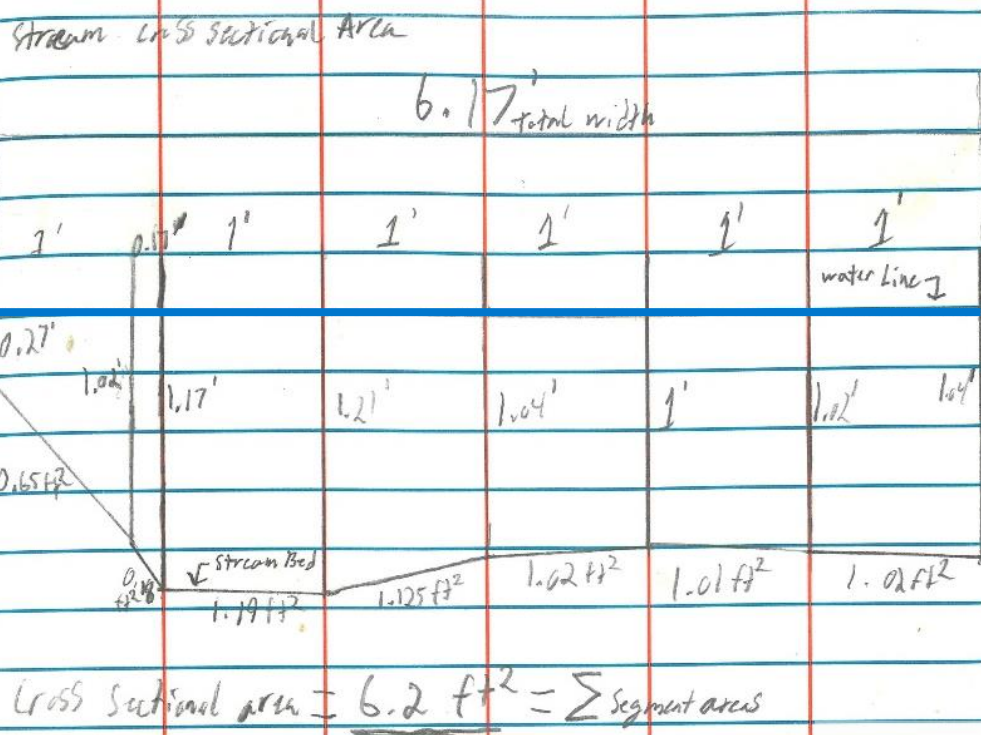 Stream Cross Sectional Area
6.17' total width
1' 0.17' 1' 1' 1' 1' 1'
water Line
0.27'
1.02' 1.17' 1.21' 1.04' 1' 1.02' 1.04'
0.65ft²
Stream Bed
0.18 ft²
1.19 ft² 1.125 ft² 1.02 ft² 1.01 ft² 1.02 ft²
Cross Sectional area = 6.2 ft² = Σ Segment areas